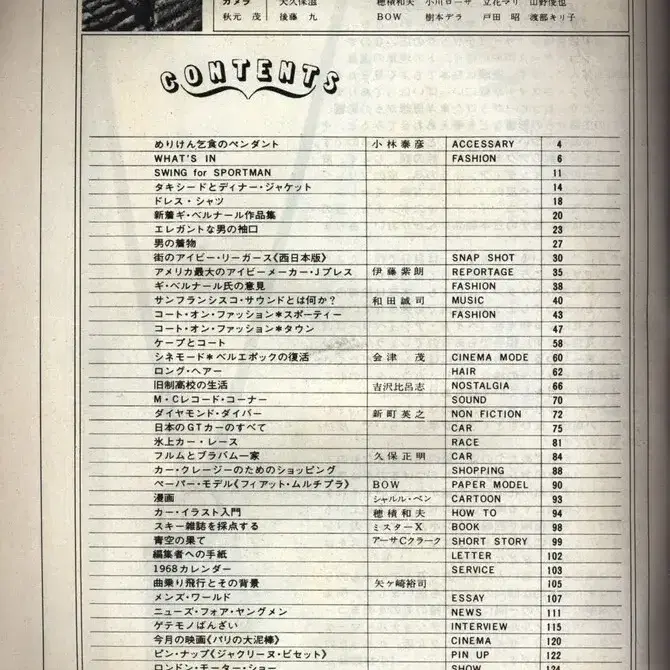 カメラ 大久保滋 穂積和夫 小川ローザ 立花マリ 山野俊也
秋元 茂 後藤 九 BOW 樹本デラ 戸田 昭 渡部キリ子
CONTENTS
めりけん乞食のペンダント 小林泰彦 ACCESSARY 4
WHAT'S IN FASHION 6
SWING for SPORTMAN 11
タキシードとディナー・ジャケット 14
ドレス・シャツ 18
新着ギ・ベルナール作品集 20
エレガントな男の袖口 23
男の着物 27
街のアイビー・リーガース《西日本版》 SNAP SHOT 30
アメリカ最大のアイビーメーカー・Jプレス 伊藤紫朗 REPORTAGE 35
ギ・ベルナール氏の意見 FASHION 38
サンフランシスコ・サウンドとは何か? 和田誠司 MUSIC 40
コート・オン・ファッション*スポーティー FASHION 43
コート・オン・ファッション*タウン 47
ケープとコート 58
シネモード*ベルエポックの復活 会津 茂 CINEMA MODE 60
ロング・ヘアー HAIR 62
旧制高校の生活 吉沢比呂志 NOSTALGIA 66
M・Cレコード・コーナー SOUND 70
ダイヤモンド・ダイバー 新町英之 NON FICTION 72
日本のGTカーのすべて CAR 75
氷上カー・レース RACE 81
フルムとブラバム一家 久保正明 CAR 84
カー・クレージーのためのショッピング SHOPPING 88
ペーパー・モデル《フィアット・ムルチプラ》 BOW PAPER MODEL 90
漫画 シャルル・ペン CARTOON 93
カー・イラスト入門 穂積和夫 HOW TO 94
スキー雑誌を採点する ミスターX BOOK 98
青空の果て アーサCクラーク SHORT STORY 99
編集者への手紙 LETTER 102
1968カレンダー SERVICE 103
曲乗り飛行とその背景 矢ヶ崎裕司 105
メンズ・ワールド ESSAY 107
ニューズ・フォア・ヤングメン NEWS 111
ゲテモノばんざい INTERVIEW 115
今月の映画《パリの大泥棒》 CINEMA 120
ピン・ナップ《ジャクリーヌ・ビセット》 PIN UP 122
ロンドン・モーター・ショー SHOW 124